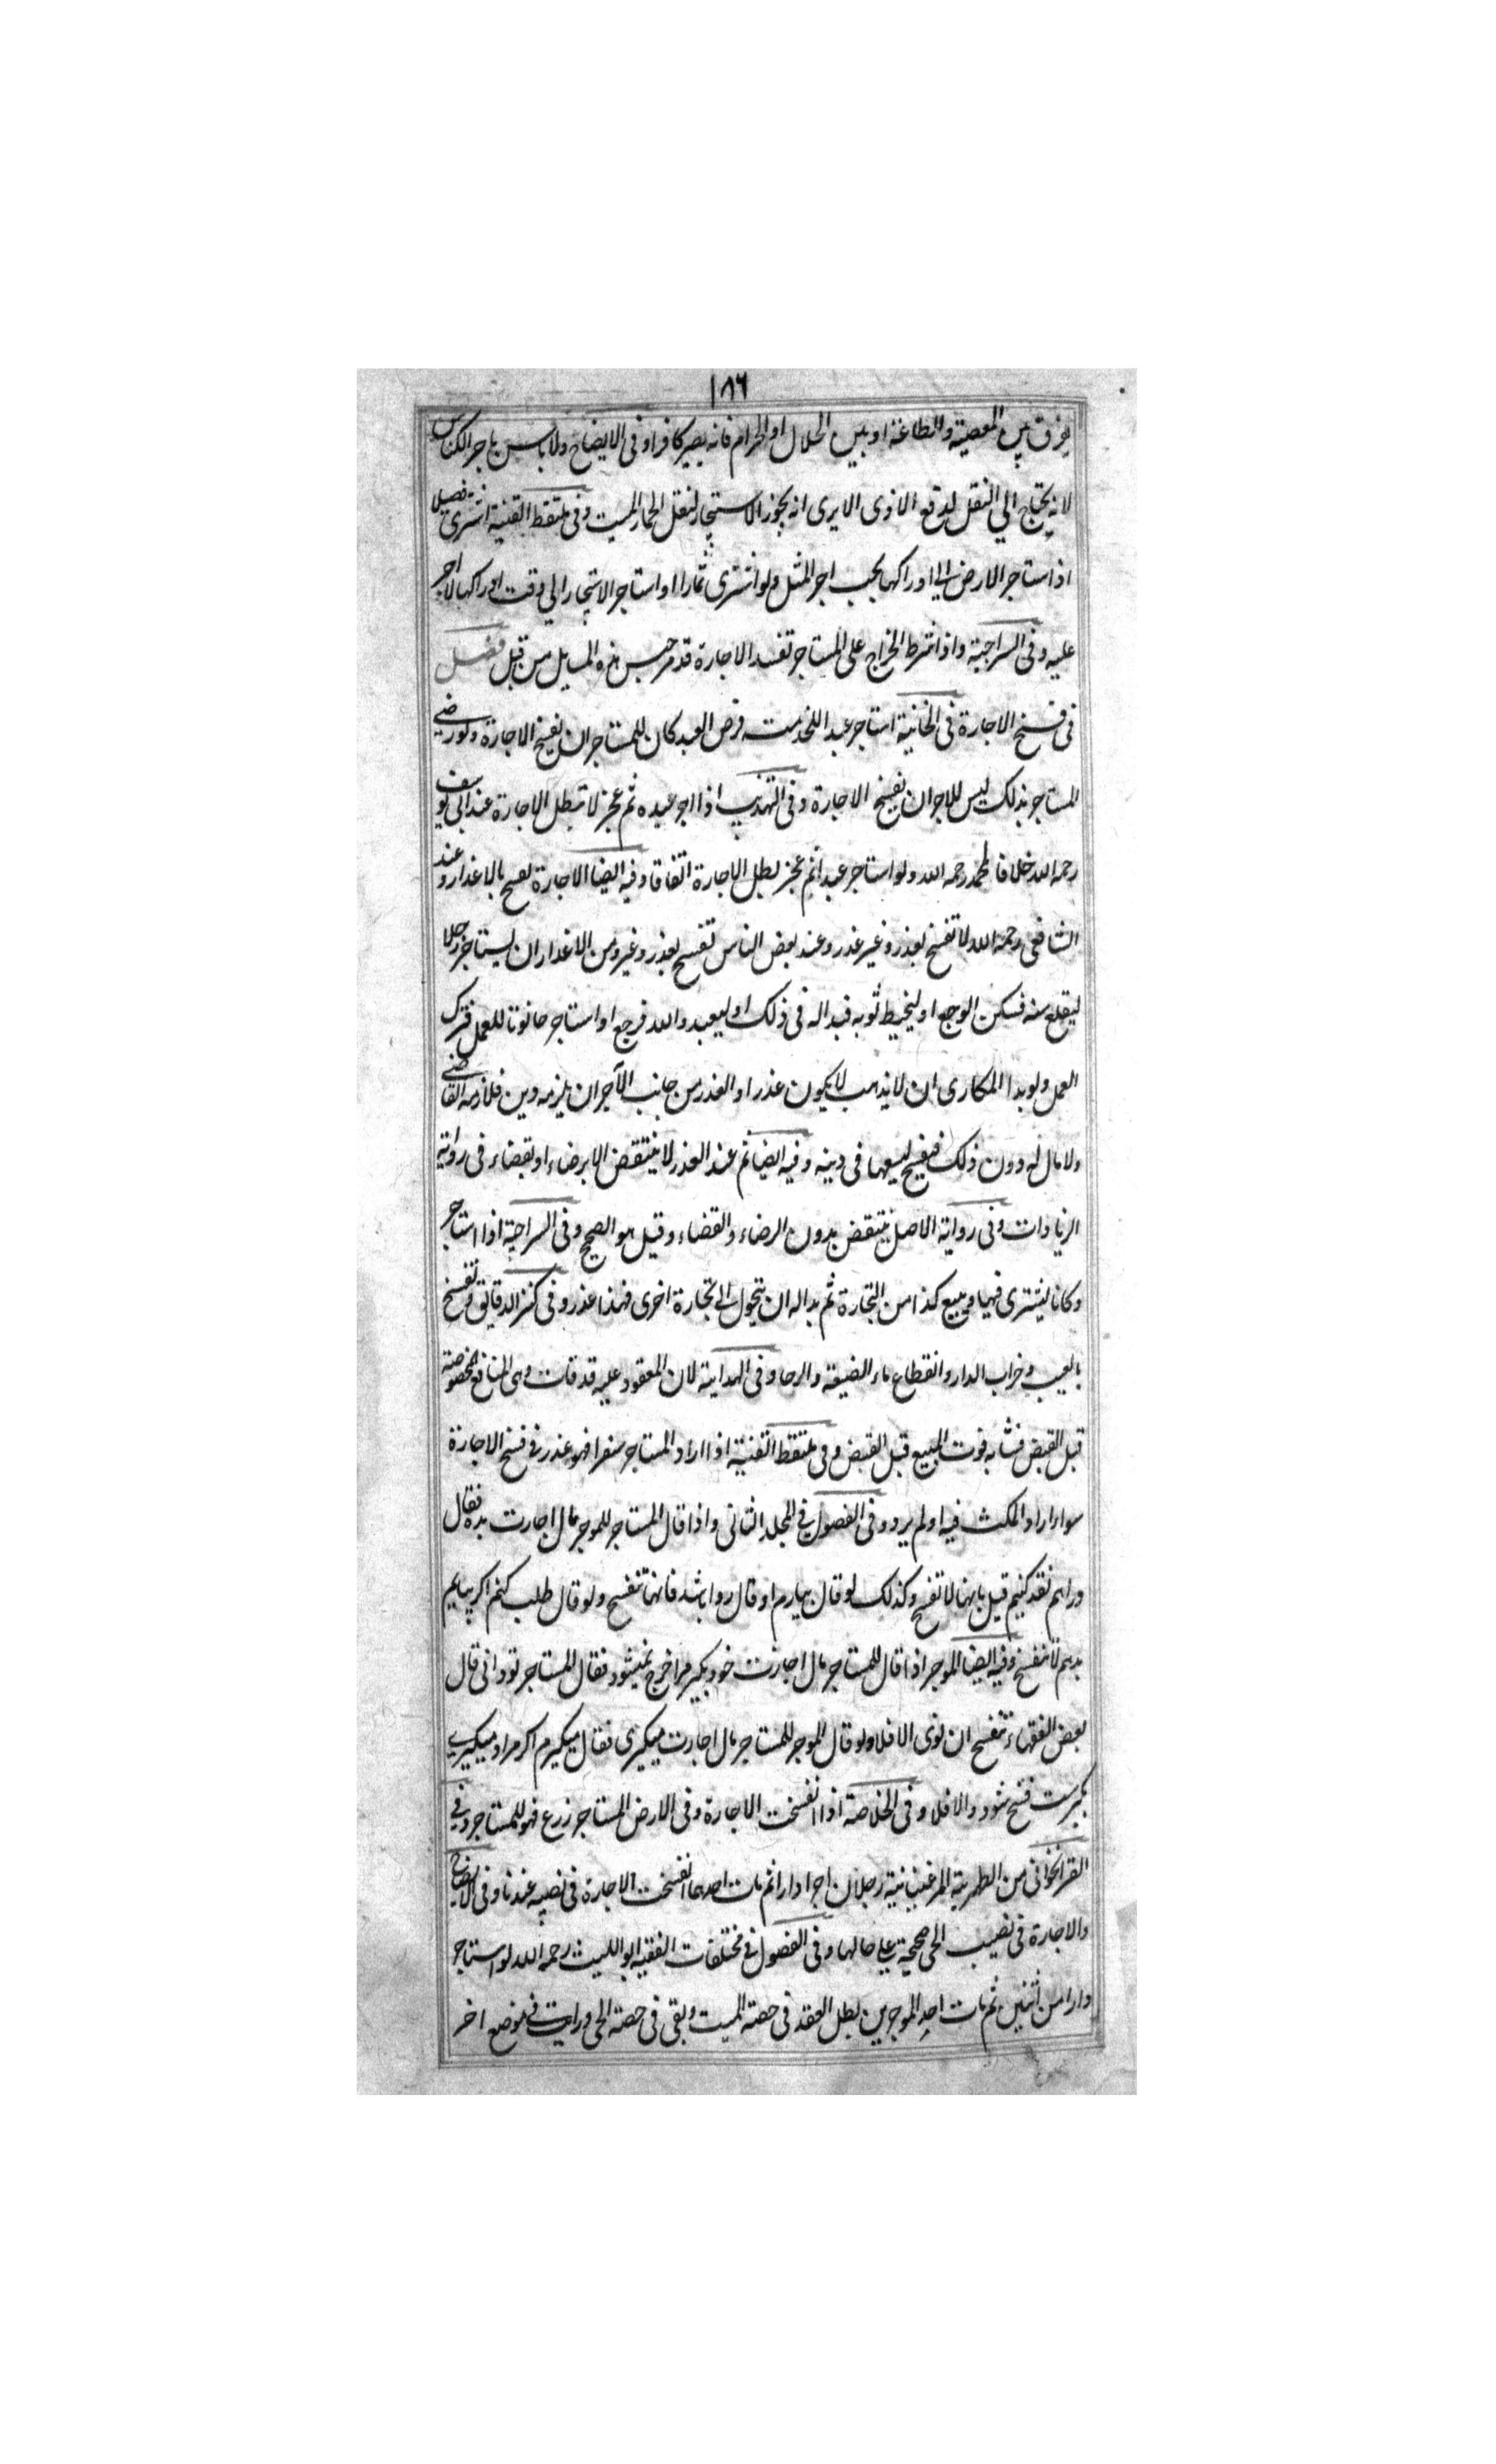 ١٨٦
يفرق بين المعصية والطاعة او بين الحلال او الحرام فانه يصير كافرا وفى الايضاح ولا باس باجر الكناس
لانه يحتاج الي النقل لدفع الاذى الا يرى انه يجوز الاستيجار لنقل الحمار الميت وفى ملتقط القنية اشترى فصيلا
اذ استاجر الارض الى ادراكها يجب اجر المثل ولو اشترى ثمارا او استاجر الاشجار الي وقت ادراكها لا اجر
عليه وفى السراجية واذا شرط الخراج على المستاجر تفسد الاجارة قد مر جنس هذه المسايل من قبل فصل
فى فسخ الاجارة فى الخانية استاجر عبد اللخدمت فرض العبد كان للمستاجر ان يفسخ الاجارة ولو رضي
المستاجر بذلك ليس للاجر ان يفسخ الاجارة وفى التهذيب اذا اجر عبده ثم عجز لا تبطل الاجارة عند ابى يوسف
رحمه الله خلافا لمحمد رحمه الله ولو استاجر عبدا ثم عجز بطل الاجارة اتفاقا وفيه ايضا الاجارة تفسخ بالاعذار وعند
الشافعى رحمة الله لا تفسخ بعذر وغير عذر وعند بعض الناس تفسخ بعذر وغيره ومن الاعذار ان يستاجر رجلا
ليقلع سنه فسكن الوجع او ليخيط ثوبه فبدا له فى ذلك او ليعبد والله فرجع او استاجر حانوتا للعمل فترك
العمل ولو بدا المكارى ان لا يذهب لا يكون عذرا والعذر من جانب الآجر ان يلزمه دين فلازمه القاضي
ولا مال له دون ذلك فيفسخ ليبيعها فى دينه وفيه ايضا ثم عند العذر لا ينتقض الا برضاء او بقضاء فى رواية
الزيادات وفى رواية الاصل ينتقض بدون الرضاء والقضاء وقيل هو الصحيح وفى السراجية اذا استاجر
وكانا يشترى فيها ويبيع كذا من التجارة ثم بدا له ان يتحول الى تجارة اخرى فهذا عذر وفى كنز الدقائق وتفسخ
بالعيب وخراب الدار وانقطاع ماء الضيعة والرحا وفى الهداية لان المعقود عليه قد فات وهى المنافع المخصوصة
قبل القبض فشابه فوت المبيع قبل القبض وفى ملتقط القنية اذا اراد المستاجر سفرا فهو عذر فى فسخ الاجارة
سواء اراد المكث فيه او لم يرد وفى الفصول فى المجلد الثانى واذا قال المستاجر للموجر مال اجارت بده فقال
دراهم نقد كنيم قيل بانها لا تفسخ وكذلك لو قال بيارم او قال روا باشد فانها تنفسخ ولو قال طلب كنم اكر بيابم
بدهم لا تنفسخ وفيه ايضا الموجر اذا قال للمستاجر مال اجارت خود بكير مرا خرج نميشود فقال المستاجر تو دانى قال
بعض الفقهاء تنفسخ ان نوى الا فلا ولو قال الموجر للمستاجر مال اجارت ميكيرى فقال ميكيرم اكر مراد ميكيري
بكيرست فسخ شود والا فلا وفى الخلاصة اذا انفسخت الاجارة وفى الارض المستاجر زرع فهو للمستاجر وفي
القراخوانى من الظهيرية المرغينانية رجلان اجرا دارا ثم مات احدهما انفسخت الاجارة فى نصيبه عندنا وفى الايضاح
والاجارة فى نصيب الحى صحيحة علي حالها وفى الفصول فى مختلفات الفقيه ابو الليث رحمه الله لو استاجر
دارا من اثنين ثم مات احد الموجرين بطل العقد فى حصة الميت وبقى فى حصة الحى ورايت فى موضع اخر